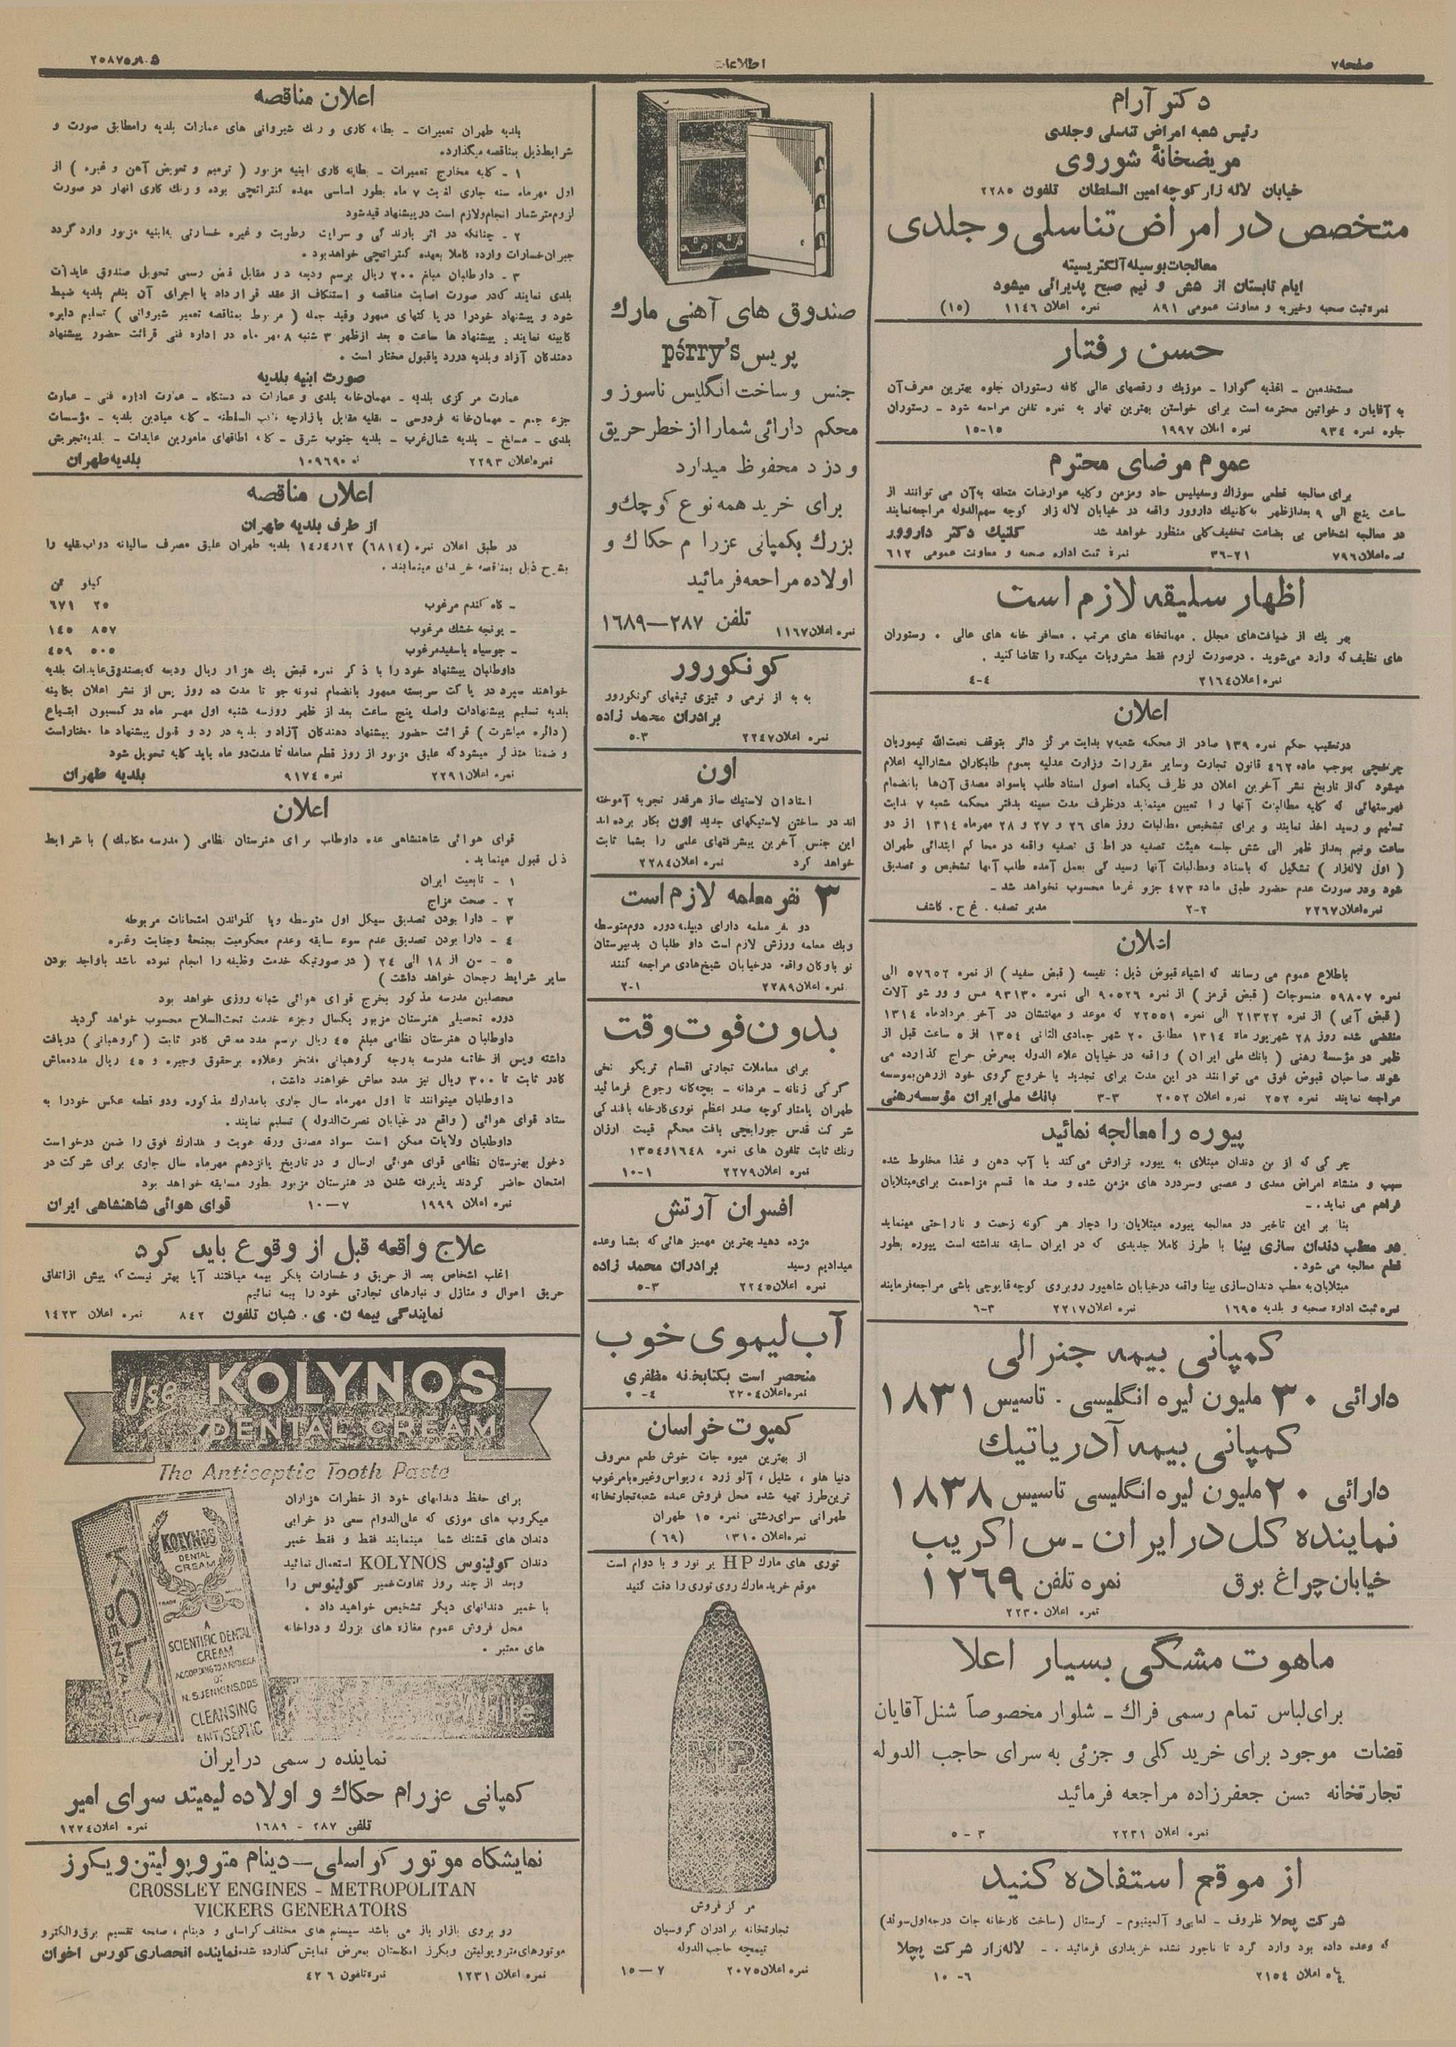 صفحه۷
اطلاعات
شماره ۲۰۸۷
دکتر آرام
رئیس شعبه امراض تناسلی وجلدی
مریضخانهٔ شوروی
خیابان لاله زار کوچه امین السلطان تلفون ۲۲۸۵
متخصص در امراض تناسلی و جلدی
معالجات بوسیله آلکتریسیته
ایام تابستان از شش و نیم صبح پذیرائی میشود
نمره ثبت صحیه وخیریه و معاونت عمومی ۸۹۱ نمره اعلان ۱۱۴۶ (۱۵)
حسن رفتار
مستخدمین - اغذیه گوارا - موزیك و رقصهای عالی کافه رستوران جلوه بهترین معرف آن
به آقایان و خواتین محترمه است برای خواستن بهترین نهار به نمره تلفن مراجعه شود - رستوران
جلوه نمره ۹۳۴ نمره اعلان ۱۹۹۷ ۱۵-۱۵
عموم مرضای محترم
برای معالجه قطعی سوزاك وسفیلیس حاد ومزمن وکلیه عوارضات متعلقه به آن می توانند از
ساعت پنج الی ۹ بعدازظهر به کلنیك داروور واقعه در خیابان لاله زار کوچه سهم الدوله مراجعه نمایند
در معالجه اشخاص بی بضاعت تخفیف کلی منظور خواهد شد کلنیك دکتر داروور
نمره اعلان ۷۹۶ ۳۶-۲۱ نمره ثبت اداره صحیه و معاونت عمومی ۶۱۲
اظهار سلیقه لازم است
بهر یك از ضیافت‌های مجلل . مهمانخانه های مرتب . مسافر خانه های عالی . رستوران
های نظیف که وارد می‌شوید . درصورت لزوم فقط مشروبات میکده را تقاضا کنید .
نمره اعلان ۲۱۶۴ ۴-۴
اعلان
درتعقیب حکم نمره ۱۳۹ صادر از محکمه شعبه ۷ بدایت مرکز دائر بتوقف نعمت‌الله تیموریان
چرخچی بموجب ماده ۴۶۲ قانون تجارت وسایر مقررات وزارت عدلیه بعموم طلبکاران مشارالیه اعلام
میشود که از تاریخ نشر آخرین اعلان در ظرف یکماه اصول اسناد طلب یاسواد مصدق آن‌ها بانضمام
فهرستهائی که کلیه مطالبات آنها را تعیین مینماید درظرف مدت معینه بدفتر محکمه شعبه ۷ بدایت
تسلیم و رسید اخذ نمایند و برای تشخیص مطالبات روز های ۲۶ و ۲۷ و ۲۸ مهرماه ۱۳۱۴ از دو
ساعت ونیم بعداز ظهر الی شش جلسه هیئت تصفیه در اطاق تصفیه واقعه در محاکم ابتدائی طهران
( اول لاله‌زار ) تشکیل که باسناد ومطالبات آنها رسیدگی بعمل آمده طلب آنها تشخیص و تصدیق
شود ودر صورت عدم حضور طبق ماده ۴۷۳ جزو غرما محسوب نخواهد شد -
نمره اعلان ۲۲۶۷ ۲-۲ مدیر تصفیه . غ ح . کاشف
اعلان
باطلاع عموم می رساند که اشیاء قبوض ذیل : نفیسه ( قبض سفید ) از نمره ۵۷۶۵۲ الی
نمره ۵۹۸۰۷ منسوجات ( قبض قرمز ) از نمره ۹۰۵۲۶ الی نمره ۹۳۱۳۰ مس و ورشو آلات
( قبض آبی ) از نمره ۲۱۳۲۲ الی نمره ۲۲۵۵۱ که موعد و مهلتشان در آخر مردادماه ۱۳۱۴
منقضی شده روز ۲۸ شهریور ماه ۱۳۱۴ مطابق ۲۰ شهر جمادی الثانی ۱۳۵۴ از ۵ ساعت قبل از
ظهر در مؤسسهٔ رهنی ( بانك ملی ایران ) واقعه در خیابان علاء الدوله بمعرض حراج گذارده می
شوند صاحبان قبوض فوق می توانند در این مدت برای تجدید یا خروج گروی خود ازرهن بموسسه
مراجعه نمایند نمره ۲۵۲ نمره اعلان ۲۰۵۲ ۳-۳ بانك ملی ایران مؤسسه رهنی
پیوره را معالجه نمائید
چرکی که از بن دندان مبتلای به پیوره تراوش می‌کند با آب دهن و غذا مخلوط شده
سبب و منشاء امراض معدی و عصبی وسردرد های مزمن شده و صد ها قسم مزاحمت برای مبتلایان
فراهم می نماید . -
بنا بر این تاخیر در معالجه پیوره مبتلایان را دچار هر گونه زحمت و ناراحتی مینماید
در مطب دندان سازی بینا با طرز کاملا جدیدی که در ایران سابقه نداشته است پیوره بطور
قطع معالجه می شود .
مبتلایان به مطب دندان‌سازی بینا واقعه درخیابان شاهپور روبروی کوچه قاپوچی باشی مراجعه فرمایند
نمره ثبت اداره صحیه و بلدیه ۱۶۹۵ نمره اعلان ۲۲۱۷ ۶-۳
کمپانی بیمه جنرالی
دارائی ۳۰ ملیون لیره انگلیسی . تاسیس ۱۸۳۱
کمپانی بیمه آدریاتیك
دارائی ۲۰ ملیون لیره انگلیسی تاسیس ۱۸۳۸
نماینده کل در ایران - س اکریب
خیابان چراغ برق نمره تلفن ۱۲۶۹
نمره اعلان ۲۲۳۰
ماهوت مشگی بسیار اعلا
برای لباس تمام رسمی فراك - شلوار مخصوصاً شنل آقایان
قضات موجود برای خرید کلی و جزئی به سرای حاجب الدوله
تجارتخانه حسن جعفرزاده مراجعه فرمائید
نمره اعلان ۲۲۳۱ ۵-۳
از موقع استفاده کنید
شرکت پچلا ظروف - لعابی و آلمینیوم - کرستال (ساخت کارخانه جات درجه اول سوئد)
که وعده داده بود وارد کرد تا ناجور نشده خریداری فرمائید . - لاله‌زار شرکت پچلا
نمره اعلان ۲۱۵۴ ۱۰-۶
صندوق های آهنی مارك
پریس pérry's
جنس و ساخت انگلیس ناسوز و
محکم دارائی شمارا از خطر حریق
و دزد محفوظ میدارد
برای خرید همه نوع کوچك و
بزرك بکمپانی عزرا م حکاك و
اولاده مراجعه فرمائید
تلفن ۲۸۷—۱۶۸۹ نمره اعلان ۱۱۶۷
کونکورور
به به از نرمی و تیزی تیغهای کونکورور
برادران محمد زاده
نمره اعلان ۲۲۴۷ ۵-۳
اون
استادان لاستیك ساز هرقدر تجربه آموخته
اند در ساختن لاستیکهای جدید اون بکار برده اند
این جنس آخرین پیشرفتهای علمی را بشما ثابت
خواهد کرد نمره اعلان ۲۲۸۴
۳ نفر معلمه لازم است
دو نفر معلمه دارای دیپلمه دوره دوم متوسطه
ویك معلمه ورزش لازم است داو طلبان بدبیرستان
نو باوکان واقعه درخیابان شیخ‌هادی مراجعه کنند
نمره اعلان ۲۲۸۹ ۲-۱
بدون فوت وقت
برای معاملات تجارتی اقسام تریکو نخی
کرکی زنانه - مردانه - بچه‌گانه رجوع فرمائید
طهران پامنار کوچه صدر اعظم نوری کارخانه بافندگی
شرکت قدس جورابچی بافت محکم قیمت ارزان
رنك ثابت تلفون های نمره ۱۶۴۸و۱۳۵۴
نمره اعلان ۲۲۷۹ ۱۰-۱
افسران آرتش
مژده دهید بهترین مهمیز هائی که بشما وعده
میدادیم رسید برادران محمد زاده
نمره اعلان ۲۲۴۵ ۵-۳
آب لیموی خوب
منحصر است بکتابخانه مظفری
نمره اعلان ۲۲۰۴ ۵-۴
کمپوت خراسان
از بهترین میوه جات خوش طعم معروف
دنیا هلو ، شلیل ، آلو زرد ، ریواس وغیره بامرغوب
ترین طرز تهیه شده محل فروش عمده شعبه تجارتخانه
طهرانی سرای رشتی نمره ۱۵ طهران
نمره اعلان ۱۳۱۰ (۶۹)
توری های مارك HP پر نور و با دوام است
موقع خرید مارك روی توری را دقت کنید
HP
مرکز فروش
تجارتخانه برادران گروسیان
تیمچه حاجب الدوله
نمره اعلان ۲۰۷۵ ۱۵-۷
اعلان مناقصه
بلدیه طهران تعمیرات - بطانه کاری و رنك شیروانی های عمارات بلدیه رامطابق صورت و
شرایط ذیل بمناقصه میگذارد.
۱ - کلیه مخارج تعمیرات - بطانه کاری ابنیه مزبور ( ترمیم و تعویض آهن و غیره ) از
اول مهرماه سنه جاری لغایت ۷ ماه بطور اساسی بعهده کنتراتچی بوده و رنك کاری انهار در صورت
لزوم متر شمار انجام ولازم است در پیشنهاد قید شود
۲ - چنانکه در اثر بارندگی و سرایت رطوبت و غیره خسارتی به ابنیه مزبور وارد گردد
جبران خسارات وارده کاملا بعهده کنتراتچی خواهد بود .
۳ - داوطلبان مبلغ ۲۰۰ ریال برسم ودیعه در مقابل قبض رسمی تحویل صندوق عایدات
بلدی نمایند که در صورت اصابت مناقصه و استنکاف از عقد قرارداد یا اجرای آن بنفع بلدیه ضبط
شود و پیشنهاد خودرا در پاکتهای ممهور وقید جمله ( مربوط بمناقصه تعمیر شیروانی ) تسلیم دایره
کابینه نمایند . پیشنهاد ها ساعت ۵ بعد ازظهر ۳ شنبه ۸ مهر ماه در اداره فنی قرائت حضور پیشنهاد
دهندگان آزاد وبلدیه دررد یاقبول مختار است .
صورت ابنیه بلدیه
عمارت مرکزی بلدیه - مهمان‌خانه بلدی و عمارات ده دستگاه - عمارت اداره فنی - عمارت
جزء - مهمان‌خانه فردوسی - نقلیه مقابل بازارچه نایب السلطنه - کلیه میادین بلدیه - مؤسسات
بلدی - مسلخ - بلدیه شمال‌غرب - بلدیه جنوب شرق - کلیه اطاقهای مامورین عایدات - بلدیه تجریش
نمره اعلان ۲۲۹۳ نمره ۱۰۹۶۹۰ بلدیه طهران
اعلان مناقصه
از طرف بلدیه طهران
در طبق اعلان نمره (۶۸۱۴) ۱۴ر۴ر۱۲ بلدیه طهران علیق مصرف سالیانه دواب نقلیه را
بشرح ذیل بمناقصه خریداری مینمایند .
کیلو تن
- کاه گندم مرغوب ۲۵ ۶۷۱
- یونجه خشك مرغوب ۸۵۷ ۱۴۵
- جوسیاه یاسفید مرغوب ۵۰۵ ۴۵۹
داوطلبان پیشنهاد خود را با ذکر نمره قبض یك هزار ریال ودیعه که بصندوق عایدات بلدیه
خواهند سپرد در پاکت سربسته ممهور بانضمام نمونه جو تا مدت ده روز پس از نشر اعلان بکابینه
بلدیه تسلیم پیشنهادات واصله پنج ساعت بعد از ظهر روز سه شنبه اول مهر ماه در کمسیون ابتیاع
(دائره مباشرت) قرائت حضور پیشنهاد دهندگان آزاد و بلدیه در رد و قبول پیشنهاد ها مختار است
و ضمنا متذکر میشود که علیق مزبور از روز قطع معامله تا مدت دو ماه باید کلیه تحویل شود
نمره اعلان ۲۲۹۱ نمره ۹۱۷۴ بلدیه طهران
اعلان
قوای هوائی شاهنشاهی عده داوطلب برای هنرستان نظامی ( مدرسه مکانیك ) با شرایط
ذیل قبول مینماید .
۱ - تابعیت ایران
۲ - صحت مزاج
۳ - دارا بودن تصدیق سیکل اول متوسطه ویا گذراندن امتحانات مربوطه
۴ - دارا بودن تصدیق عدم سوء سابقه وعدم محکومیت بجنحهٔ وجنایت وغیره
۵ - سن از ۱۸ الی ۲۴ ( در صورتیکه خدمت وظیفه را انجام نموده باشد باواجد بودن
سایر شرایط رجحان خواهد داشت )
محصلین مدرسه مذکور بخرج قوای هوائی شبانه روزی خواهد بود
دوره تحصیلی هنرستان مزبور یکسال وجزء خدمت تحت‌السلاح محسوب خواهد گردید
داوطلبان هنرستان نظامی مبلغ ۴۵ ریال برسم مدد معاش کادر ثابت ( گروهبانی ) دریافت
داشته وپس از خاتمه مدرسه بدرجه گروهبانی مفتخر وعلاوه برحقوق وجیره و ۴۵ ریال مددمعاش
کادر ثابت تا ۳۰۰ ریال نیز مدد معاش خواهند داشت .
داوطلبان میتوانند تا اول مهرماه سال جاری بامدارك مذکوره ودو قطعه عکس خودرا به
ستاد قوای هوائی ( واقع در خیابان نصرت‌الدوله ) تسلیم نمایند .
داوطلبان ولایات ممکن است سواد مصدق ورقه هویت و مدارك فوق را ضمن درخواست
دخول بهنرستان نظامی قوای هوائی ارسال و در تاریخ پانزدهم مهرماه سال جاری برای شرکت در
امتحان حاضر گردند پذیرفته شدن در هنرستان مزبور بطور مسابقه خواهد بود
نمره اعلان ۱۹۹۹ ۱۰-۷ قوای هوائی شاهنشاهی ایران
علاج واقعه قبل از وقوع باید کرد
اغلب اشخاص بعد از حریق و خسارات بفکر بیمه میافتند آیا بهتر نیست که پیش ازاتفاق
حریق اموال و منازل و انبارهای تجارتی خود را بیمه نمائیم
نمایندگی بیمه ن . ی . شبان تلفون ۸۴۲ نمره اعلان ۱۴۲۳
Use KOLYNOS
DENTAL CREAM
The Antiseptic Tooth Paste
برای حفظ دندانهای خود از خطرات هزاران
میکروب های موزی که علی‌الدوام سعی در خرابی
دندان های قشنك شما مینمایند فقط و فقط خمیر
دندان کولینوس KOLYNOS استعمال نمائید
وبعد از چند روز تفاوت خمیر کولینوس را
با خمیر دندانهای دیگر تشخیص خواهید داد .
محل فروش عموم مغازه های بزرك و دواخانه
های معتبر .
KOLYNOS
DENTAL
CREAM
A
SCIENTIFIC DENTAL
CREAM
ACCORDING TO A FORMULA
OF
N. S. JENKINS, D.D.S.
CLEANSING
ANTISEPTIC
White
نماینده رسمی در ایران
کمپانی عزرام حکاك و اولاده لیمیتد سرای امیر
تلفن ۲۸۷ - ۱۶۸۹ نمره اعلان ۱۲۲۴
نمایشگاه موتور کراسلی – دینام متروپولیتن ویکرز
CROSSLEY ENGINES - METROPOLITAN
VICKERS GENERATORS
رو بروی بازار باز می باشد سیستم های مختلف کراسلی و دینام ، صفحه تقسیم برق والکترو
موتورهای متروپولیتن ویکرز انگلستان بمعرض نمایش گذارده شد. نماینده انحصاری کورس اخوان
نمره اعلان ۱۲۳۱ نمره تلفون ۴۲۶